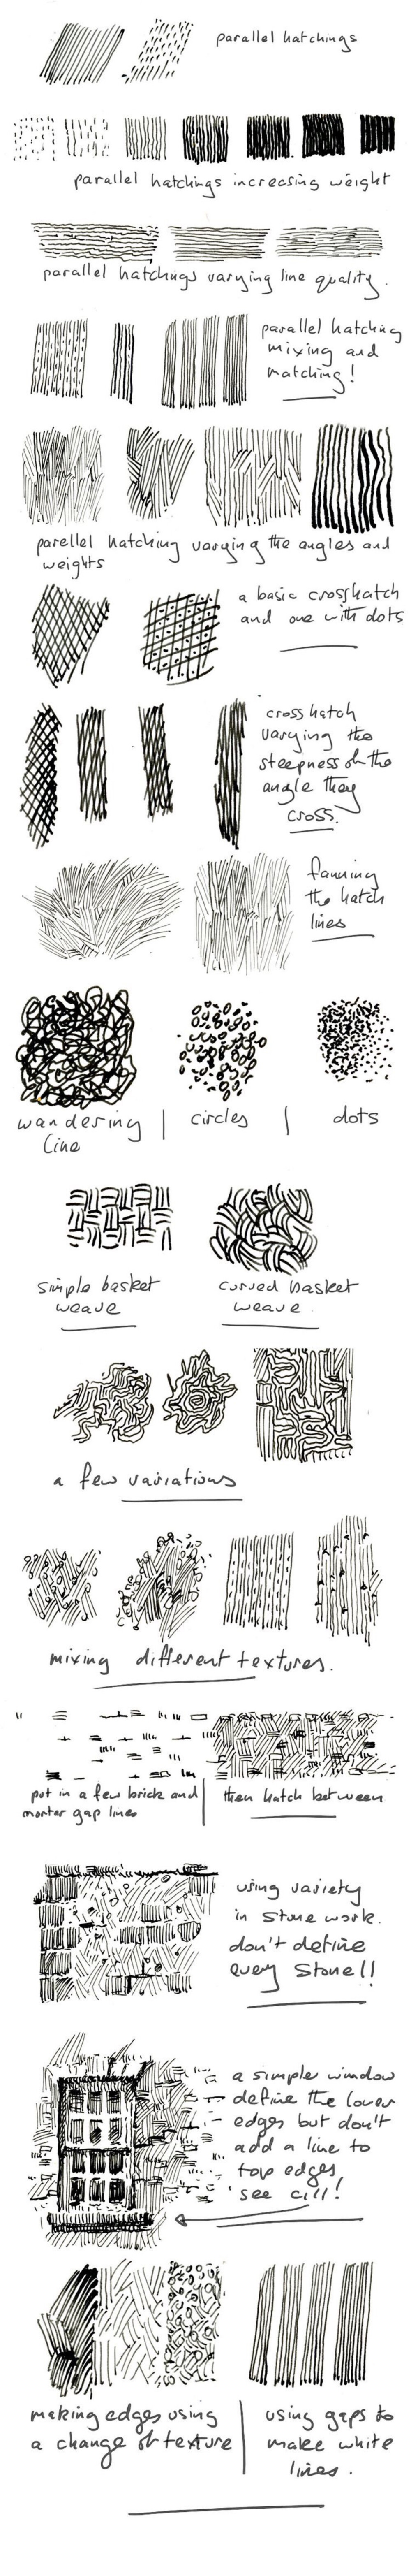 parallel hatchings
parallel hatchings increasing weight
parallel hatchings varying line quality.
parallel hatching
mixing and
matching!
parellel hatching varying the angles and
weights
a basic crosshatch
and one with dots
cross hatch
varying the
steepness of the
angle they
cross.
fanning
the hatch
lines
wandering
line
circles
dots
simple basket
weave
curved basket
weave.
a few variations
mixing different textures.
put in a few brick and
mortar gap lines
then hatch between
using variety
in stone work.
don't define
every stone!!
a simple window
define the lower
edges but don't
add a line to
top edges
see cill!
making edges using
a change of texture
using gaps to
make white
lines.